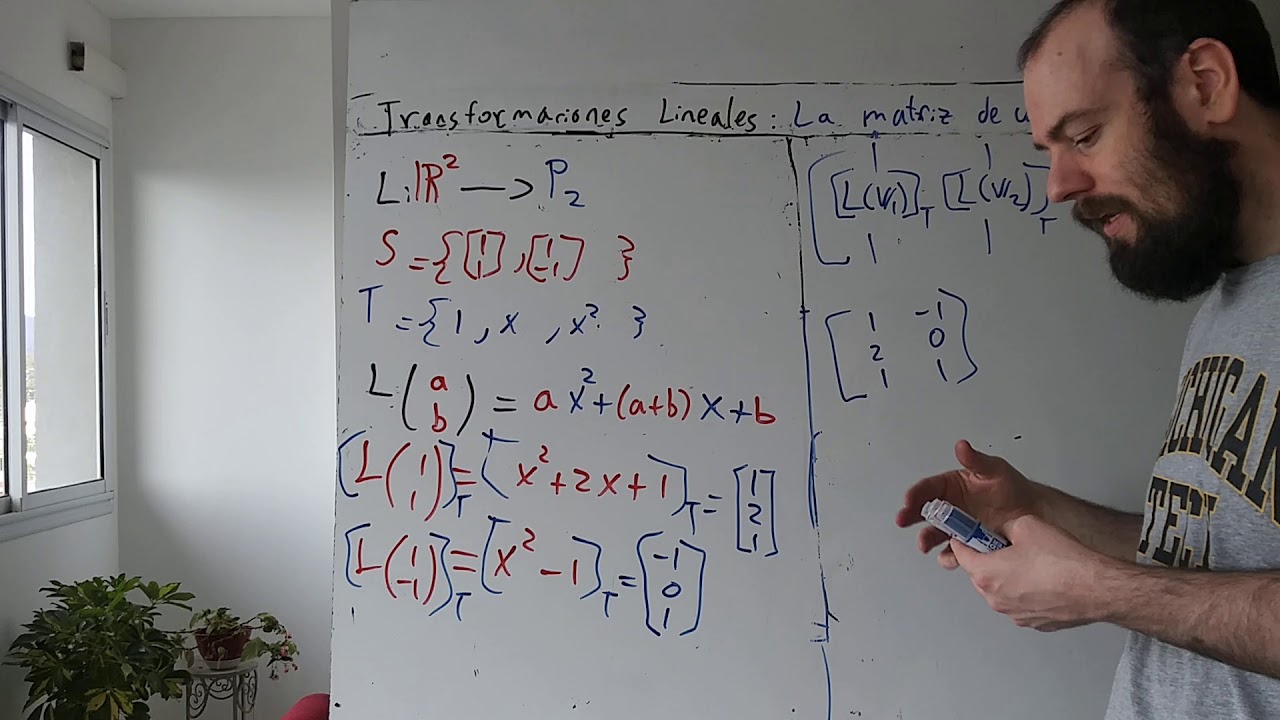 Transformaciones Lineales: La matriz de u
L: ℝ² → P₂
S = {[1 1], [1 -1]}
T = {1, x, x²}
L(a b) = ax² + (a+b)x + b
[L(1 1)]_T = [x² + 2x + 1]_T = [1 2 1]
[L(1 -1)]_T = [x² - 1]_T = [-1 0 1]
[L(v₁)]_T [L(v₂)]_T
1 -1
2 0
1 1
MICHIGAN
TECH